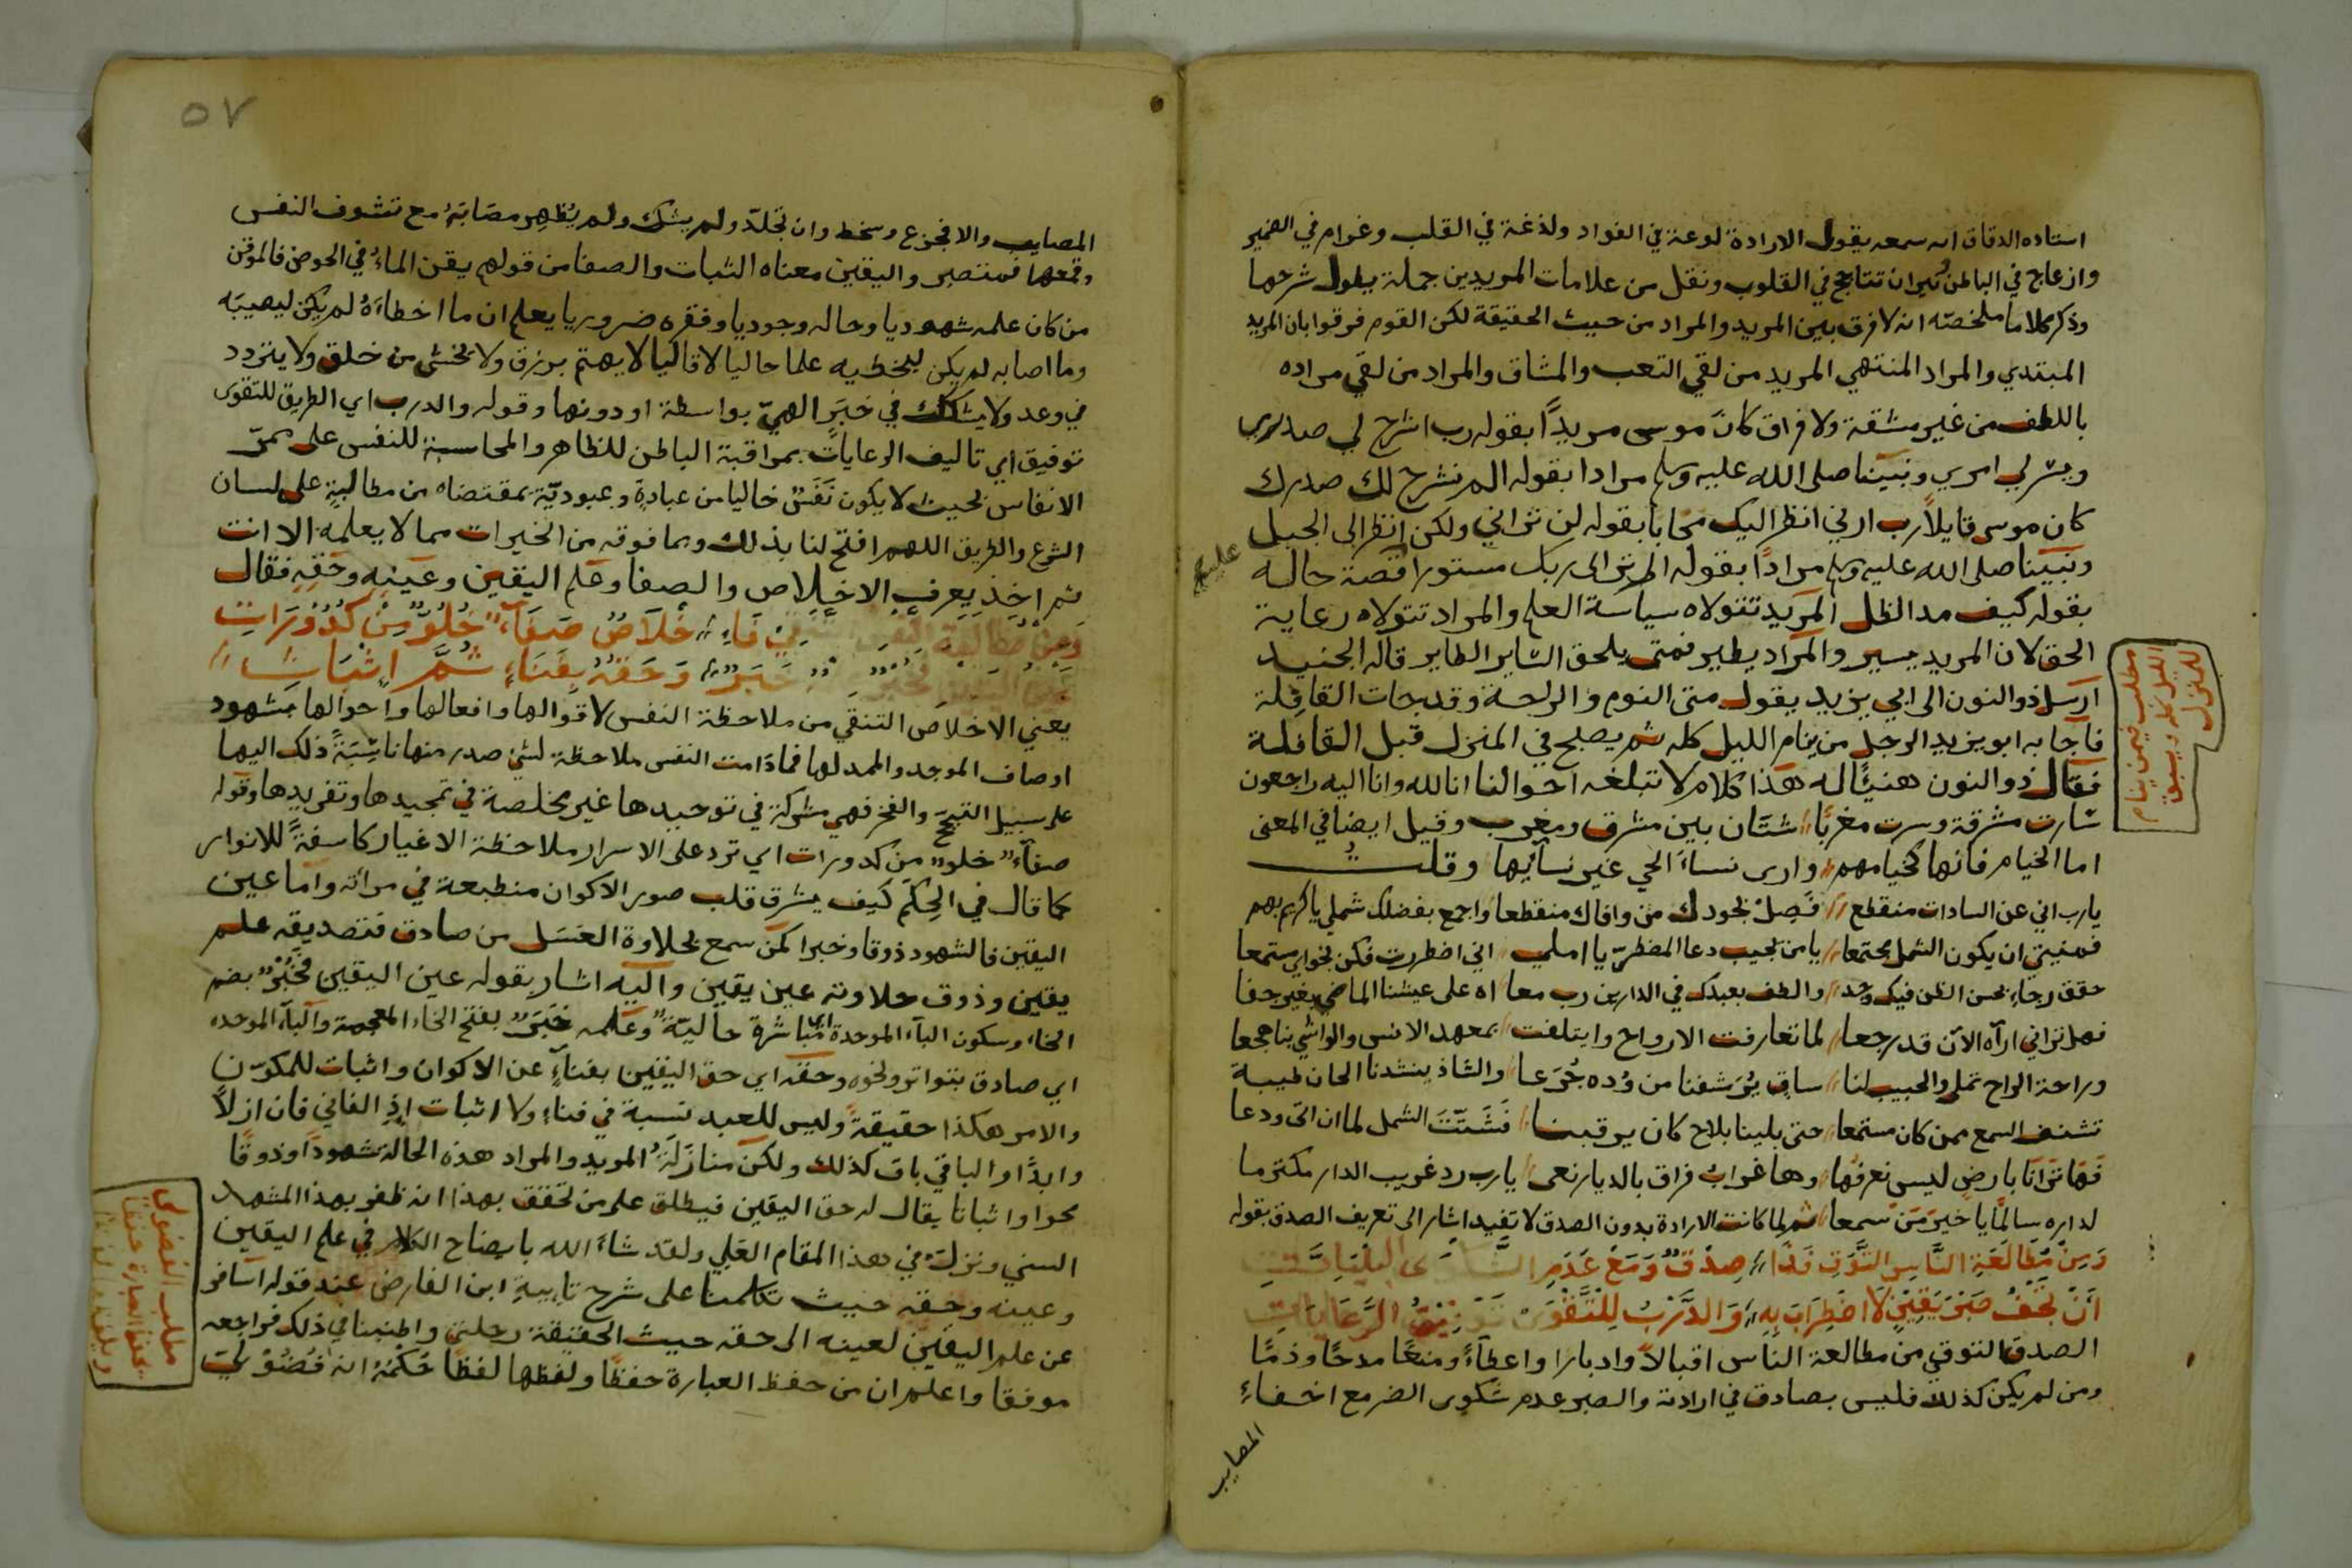 استاده الدقاق انه سمعه يقول الارادة لوعة في الفواد ولذغة في القلب وغرام في الضمير
وازعاج في الباطن ونيران تتاجج في القلوب ونقل من علامات المريدين جملة يطول شرحها
وذكر كلاما ملخصه انه لا فرق بين المريد والمراد من حيث الحقيقة لكن القوم فرقوا بان المريد
المبتدي والمراد المنتهي المريد من لقي التعب والمشاق والمراد من لقي مراده
باللطف من غير مشقة ولا فراق كان موسى مريدًا بقوله رب اشرح لي صدري
ويسر لي امري ونبينا صلى الله عليه وسلم مرادا بقوله الم نشرح لك صدرك
كان موسى قايلاً رب ارني انظر اليك مجابا بقوله لن تراني ولكن انظر الى الجبل
ونبينا صلى الله عليه وسلم مرادًا بقوله الم تر الى ربك مستورا قصة حاله
عليه
بقوله كيف مد الظل المريد تتولاه سياسة العلم والمراد تتولاه رعاية
الحق لان المريد يسير والمراد يطير فمتى يلحق الساير الطاير قاله الجنيد
ارسل ذو النون الى ابي يزيد يقول متى النوم والراحة وقد جات القافلة
فاجابه ابو يزيد الرجل من ينام الليل كله ثم يصبح في المنزل قبل القافلة
فقال ذو النون هنيًا له هذا كلام لا تبلغه احوالنا انا لله وانا اليه راجعون
مطلب فيمن ينام
الليل كله ويسبق
للمنزل
سارت مشرقة وسرت مغربًا شتان بين مشرق ومغرب وقيل ايضا في المعنى
اما الخيام فانها كخيامهم وارى نساء الحي غير نسايها وقلت
يارب اني عن السادات منقطع فصل بجودك من وافاك منقطعا واجمع بفضلك شملي يا كريم بهم
فمنيتي ان يكون الشمل مجتمعا يا من يجيب دعا المضطر يا املي اني اضطررت فكن نجواي مستمعا
حقق رجاء بحسن الظن فيك وجد والطف بعبدك في الدارين رب معا اه على عيشنا الماضي بغير جفا
فهل تراني اراه الآن قد رجعا لما تعارفت الارواح وايتلفت بمعهد الانس والواشي بنا هجعا
وراحة الراح تملي والحبيب لنا ساق يرشفنا من وده جرعا والشاذ ينشدنا الحان طيبة
تشنف السمع ممن كان مستمعا حتى بلينا بلاح كان يرقبنا فشتت الشمل لما ان اتى ودعا
فها ترانا بارض ليس نعرفها وها غراب فراق بالديار نعى يارب رد غريب الدار مكترما
لداره سالمًا يا خير من سمعا ثم لما كانت الارادة بدون الصدق لا تفيد اشار الى تعريف الصدق بقوله
وَمِنْ مُطَالَعَةِ النَّاسِ التَّوَقِّي صِدْقٌ وَمَعْ عَدَمِ
اَنْ تَحُفْ صَبْرَ يَقِيْنٍ لا اضْطِرَابَ بِهِ وَالدَّرْبُ لِلتَّقْوَى تَوْفِيْقُ الرِّعَايَاتِ
الصدق التوقي من مطالعة الناس اقبالاً وادبارا واعطآءً ومنعًا مدحًا وذمًا
ومن لم يكن كذلك فليس بصادق في ارادته والصبر عدم شكوى الضر مع اخفاء
المصايب
٥٧
المصايب والا فجزع وسخط وان تجلد ولم يشك ولم يظهر مصابه مع تشوف النفس
وقمعها فمتصبر واليقين معناه الثبات والصفا من قولهم يقن الماء في الحوض فالموقن
من كان علمه شهوديا وحاله وجوديا وفقره ضروريا يعلم ان ما اخطاه لم يكن ليصيبه
وما اصابه لم يكن ليخطيه علما حاليا لا قاليا لا يهتم برزق ولا يخشى من خلق ولا يتردد
في وعد ولا يشكك في خبر الهي بواسطة او دونها وقوله والدرب اي الطريق للتقوى
توفيق اي تاليف الرعايات بمراقبة الباطن للظاهر والمحاسبة للنفس على ممر
الانفاس بحيث لا يكون نفس خاليا من عبادة وعبودية بمقتضاه من مطالبة على لسان
الشرع والطريق اللهم افتح لنا بذلك وبما فوقه من الخيرات مما لا يعلمه الا انت
ثم اخذ يعرف الاخلاص والصفا وعلم اليقين وعينه وحقه فقال
خْلاَصٌ صَفَاءٌ خُلُوٌّ مِنْ كُدُوْرَاتِ
خَبَرٌ وَحَقُّهُ بِفَنَاءٍ ثُمَّ اِثْبَاتِ
يعني الاخلاص التنقي من ملاحظة النفس لاقوالها وافعالها واحوالها بشهود
اوصاف الموجد والممد لها فما دامت النفس ملاحظة لشئ صدر منها ناسبة ذلك اليها
على سبيل التبجح والفخر فهي مشركة في توحيدها غير مخلصة في تمجيدها وتفريدها وقوله
صفآء خلو من كدورات اي ترد على الاسرار ملاحظة الاغيار كاسفة للانوار
كما قال في الحكم كيف يشرق قلب صور الاكوان منطبعة في مرآته واما عين
اليقين فالشهود ذوقا وخبرا كمن سمع بحلاوة العسل من صادق فتصديقه علم
يقين وذوق حلاوته عين يقين واليه اشار بقوله عين اليقين فخبر بضم
الخاء وسكون الباء الموحدة اي مباشرة حالية وعلمه خبر بفتح الخاء المعجمة والباء الموحده
اي صادق بتواتر ونحوه وحقه اي حق اليقين بفناء عن الاكوان واثبات للمكون
والامر هكذا حقيقة وليس للعبد نسبة في فناء ولا اثبات اذ الفاني فان ازلاً
وابدًا والباقي باق كذلك ولكن منازلة المريد والمراد هذه الحالة شهودًا وذوقًا
محوا واثباتا يقال له حق اليقين فيطلق على من تحقق بهذا انه ظفر بهذا المشهد
السني ونزل في هذا المقام العلي ولقد شاء الله بايضاح الكلام في علم اليقين
وعينه وحقه حيث تكلمنا على شرح تايية ابن الفارض عند قوله اسافر
عن علم اليقين لعينه الى حقه حيث الحقيقة رحلتي واطنبنا في ذلك فراجعه
موفقا واعلم ان من حفظ العبارة حفظًا ولفظها لفظًا حكمه انه فضولي
مطلب الفضولي
يحفظ العبارة حفظًا